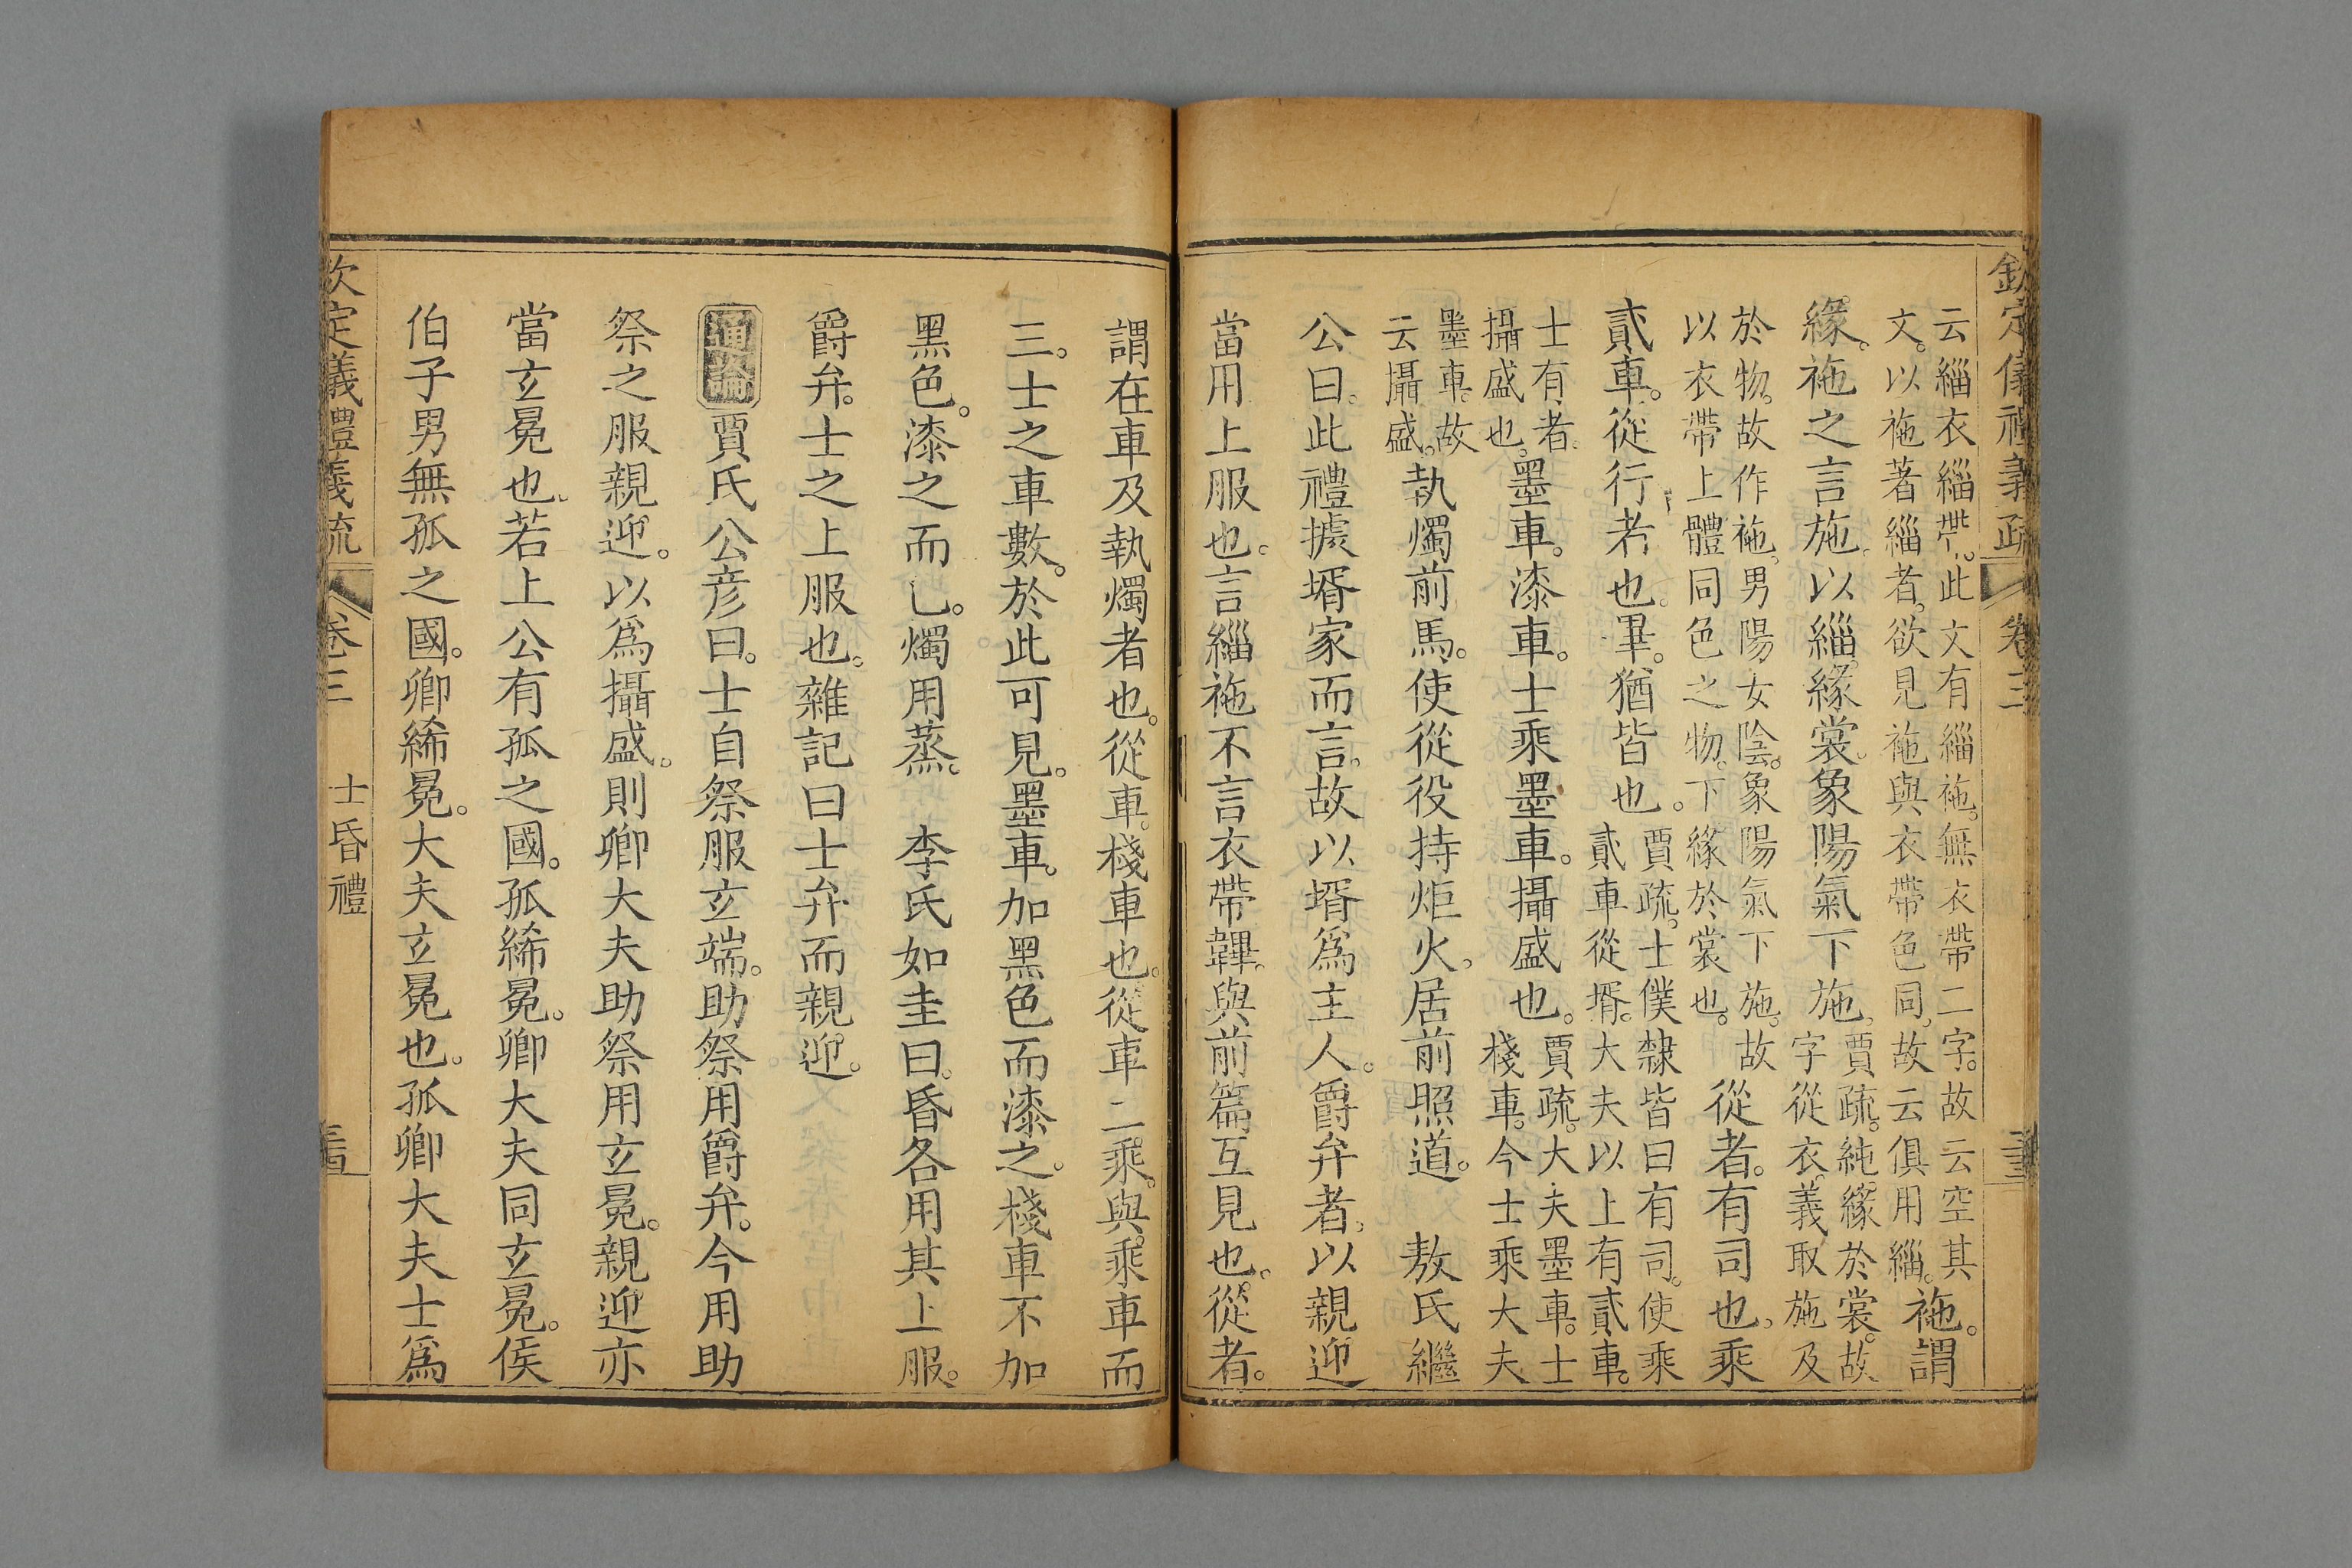 欽定儀禮義疏 卷三
云緇衣緇帶。此文有緇袘。無衣帶二字。故云空其
文。以袘著緇者。欲見袘與衣帶色同。故云俱用緇。
袘。謂
緣。袘之言施。以緇緣裳。象陽氣下施。
賈疏。純緣於裳。故
字從衣。義取施及
於物。故作袘。男陽女陰。象陽氣下施。故
以衣帶上體同色之物。下緣於裳也。
從者。有司也。乘
貳車。從行者也。畢。猶皆也。
賈疏。士僕隸皆曰有司。使乘
貳車從壻。大夫以上有貳車。
士有者。
攝盛也。
墨車。漆車。士乘墨車。攝盛也。
賈疏。大夫墨車。士
棧車。今士乘大夫
墨車。故
云攝盛。
執燭前馬。使從役持炬火。居前照道。 敖氏繼
公曰。此禮據壻家而言。故以壻爲主人。爵弁者。以親迎
當用上服也。言緇袘不言衣帶韠。與前篇互見也。從者。
謂在車及執燭者也。從車。棧車也。從車二乘。與乘車而
三。士之車數。於此可見。墨車。加黑色而漆之。棧車不加
黑色。漆之而已。燭用蒸。 李氏如圭曰。昏各用其上服。
爵弁。士之上服也。雜記曰士弁而親迎。
通論 賈氏公彦曰。士自祭服玄端。助祭用爵弁。今用助
祭之服親迎。以爲攝盛。則卿大夫助祭用玄冕。親迎亦
當玄冕也。若上公有孤之國。孤絺冕。卿大夫同玄冕。侯
伯子男無孤之國。卿絺冕。大夫玄冕也。孤卿大夫士爲
欽定儀禮義疏 卷三 士昏禮